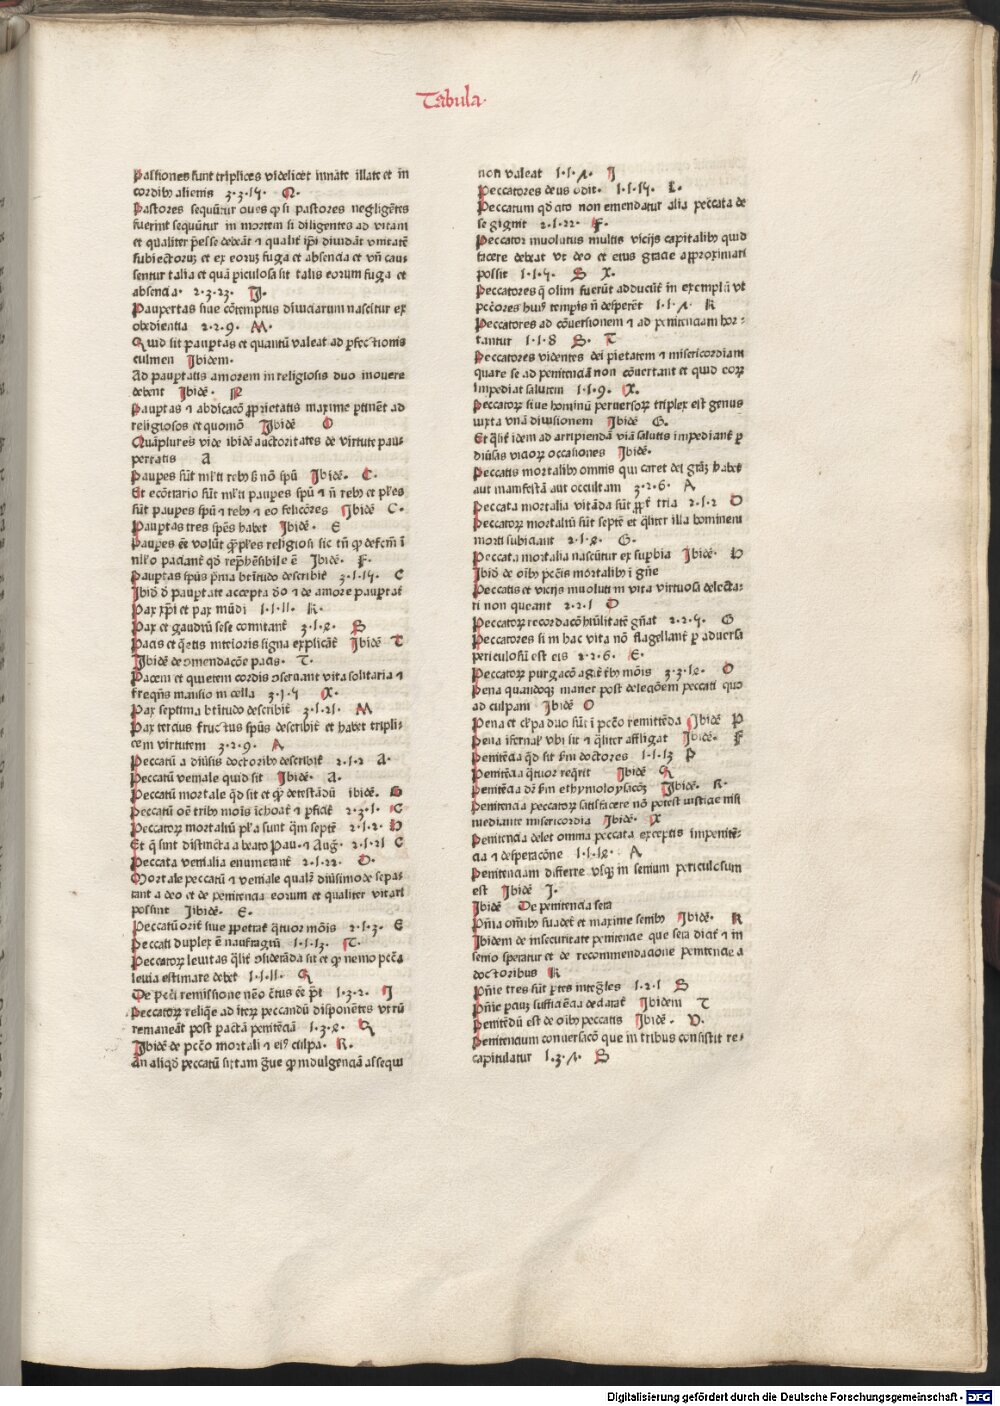 Tabula.
Passiones sunt triplices videlicet innate illate et in
cordibꝫ alienis 3·3·15· Q.
Pastores sequūtur oues qꝫ si pastores negligētes
fuerint sequūtur in mortem si diligentes ad vitam
et qualiter p̄esse debeāt ⁊ qualit̄ ip̄i diuidāt vnitatē
subiectorum et ex eorum fuga et absencia et vn̄ cau-
sentur talia et quā ꝑiculosa sit talis eorum fuga et
absencia· 2·3·23· J·
Paupertas siue cōtemptus diuiciarum nascitur ex
obedientia 2·2·9· M·
Quid sit pauꝑtas et quantū valeat ad ꝑfectionis
culmen Ibidem·
Ad pauꝑtatis amorem in religiosis duo mouere
debent Ibidē· P
Pauꝑtas ⁊ abdicacō ꝓprietatis maxime ptinēt ad
religiosos et quomō Ibidē O
Quāplures vide ibidē auctoritates de virtute pau-
pertatis A
Paupes sūt ml'ti rebꝫ s̄ nō spū Ibidē· C·
Et ecōtrario sūt ml'ti paupes spū ⁊ n̄ rebꝫ et pl'es
sūt paupes spū ⁊ rebꝫ ⁊ eo felicōres Ibidē C·
Pauꝑtas tres sp̄es habet Ibidē· E
Paupes eē volūt qꝫ pl'es religiosi sic tn̄ qꝫ defcm̄ ī
nll'o paciant̄ qd̄ rep̄hēsibile ē Ibidē· F·
Pauꝑtas spūs pma btītudo describit̄ 3·1·15· C
Ibid̄ d̄ pauꝑtate accepta do ⁊ de amore pauꝑtat̄
Pax xp̄i et pax mūdi 1·1·11· K·
Pax et gaudiū sese comitant̄ 3·1·2· S
Pacis et q̄etis interioris signa explicāt̄ Ibidē T
Ibidē de ɔmendacōe pacis· T·
Pacem et quietem cordis ɔseruant vita solitaria ⁊
freqn̄s mansio in cella 3·1·5 X·
Pax septima btītudo describit̄ 3·1·21· M
Pax tercius fructus spūs describit̄ et habet tripli-
cem virtutem 3·2·9· A
Peccatū a diūsis doctoribꝫ describit̄ 2·1·2 A·
Peccatū veniale quid sit Ibidē· A·
Peccatū mortale qd̄ sit et qꝫ detestādū ibidē· B
Peccatū oē tribꝫ mōis īchoat̄ ⁊ ꝑficit̄ 2·3·1· C
Peccatoꝝ mortaliū pl'a sunt qm̄ septē 2·1·2· D
Et q̄ sint distincta a beato Pau·⁊ Auḡ· 2·1·21 C
Peccata venialia enumerant̄ 2·1·22· D·
Mortale peccatū ⁊ veniale qualr̄ diuisimode sepa-
rant a deo et de penitencia eorum et qualiter vitari
possint Ibidē· E·
Peccatū orit̄ siue ꝑpetrat̄ q̄tuor mōis 2·1·3· E
Peccati duplex ē naufragiū 1·1·13· T·
Peccatoꝝ leuitas q̄lit̄ ɔsiderāda sit et qꝫ nemo pc̄ca
leuia estimare debet 1·1·11· Q
De pc̄ti remissione nēo c̄tus eē pt̄ 1·3·2· J
Peccatoꝝ reliqe ad iteꝝ peccandū disponētes vtrū
remaneāt post pactā penitēciā 1·3·2· Q
Ibidē de pc̄co mortali ⁊ eiꝰ culpa· R·
An aliqd̄ peccatū sit tam ḡue qꝫ indulgenciā assequi
non valeat 1·1·4· J
Peccatores deus odit· 1·1·15· L·
Peccatum qd̄ cito non emendatur alia peccata de
se gignit 2·1·22· F·
Peccator inuolutus multis vicijs capitalibꝫ quid
facere debeat vt deo et eius gracie approximari
possit 1·1·5· S X·
Peccatores q̄ olim fuerūt adducūt̄ in exemplū vt
pc̄cōres huiꝰ tempis n̄ despērēt 1·1·4· R
Peccatores ad cōuersionem ⁊ ad penitenciam hor-
tantur 1·1·8 S· T
Peccatores videntes dei pietatem ⁊ misericordiam
quare se ad penitenciā non cōuertant et quid eoꝝ
impediat salutem 1·1·9· X·
Peccatoꝝ siue hominū peruersoꝝ triplex est genus
iuxta vnā diuisionem Ibidē G·
Et q̄lit̄ idem ad arripiendā viā salutis impediant̄ ꝑ
diūsas vicioꝝ occasiones Ibidē·
Peccatis mortalibꝫ omnis qui caret dei grāꝫ habet
aut manifestā aut occultam 3·2·6· A
Peccata mortalia vitāda sūt ꝓpt̄ tria 2·1·2 O
Peccatoꝝ mortaliū sūt septē et q̄liter illa hominem
morti subiciant 2·1·2· G·
Peccata mortalia nascūtur ex supbia Ibidē· D
Ibid̄ de oībꝫ pc̄cis mortalibꝫ ī gn̄e
Peccatis et vicijs inuoluti in vita virtuosa delecta-
ri non queant 2·2·1 O
Peccatoꝝ recordacō hūilitatē gn̄at 2·2·5· G
Peccatores si in hac vita nō flagellant̄ ꝑ aduersa
periculosū est eis 2·2·6· E·
Peccatoꝝ purgacō agit̄ tbꝫ mōis 3·3·12· O
Pena quandoqꝫ manet post deleqōem peccati quo
ad culpam Ibidē O
Pena et cl'pa duo sūt ī pc̄co remittēda Ibidē P
Pena ifernal' vbi sit ⁊ q̄liter affligat Ibidē· F
Penitēcia qd̄ sit sm̄ doctores 1·1·13 P
Penitēcia q̄tuor reqrit Ibidē Q
Penitēcia dr̄ sm̄ ethymoloysacōꝫ Ibidē· R·
Penitencia peccatoꝝ satisfacere nō potest iusticie nisi
mediante misericordia Ibidē· X
Penitencia delet omnia peccata exceptis impenitē-
cia ⁊ desperacōne 1·1·12· A
Penitenciam differre vsqꝫ in senium periculosum
est Ibidē J·
Ibidē De penitencia sera
Pn̄ia om̄ibꝫ suadet̄ et maxime senibꝫ Ibidē· R
Ibidem de insecuritate penitencie que sera dicit̄ ⁊ in
senio speratur et de recommendacione penitencie a
doctoribus K
Pn̄ie tres sūt ꝑtes integles 1·2·1 S
Pn̄ie paruꝫ sufficiēcia declarat̄ Ibidem T
Penitēdū est de oībꝫ peccatis Ibidē· V·
Penitencium conuersacō que in tribus consistit re-
capitulatur 1·3·4· S
Digitalisierung gefördert durch die Deutsche Forschungsgemeinschaft - DFG